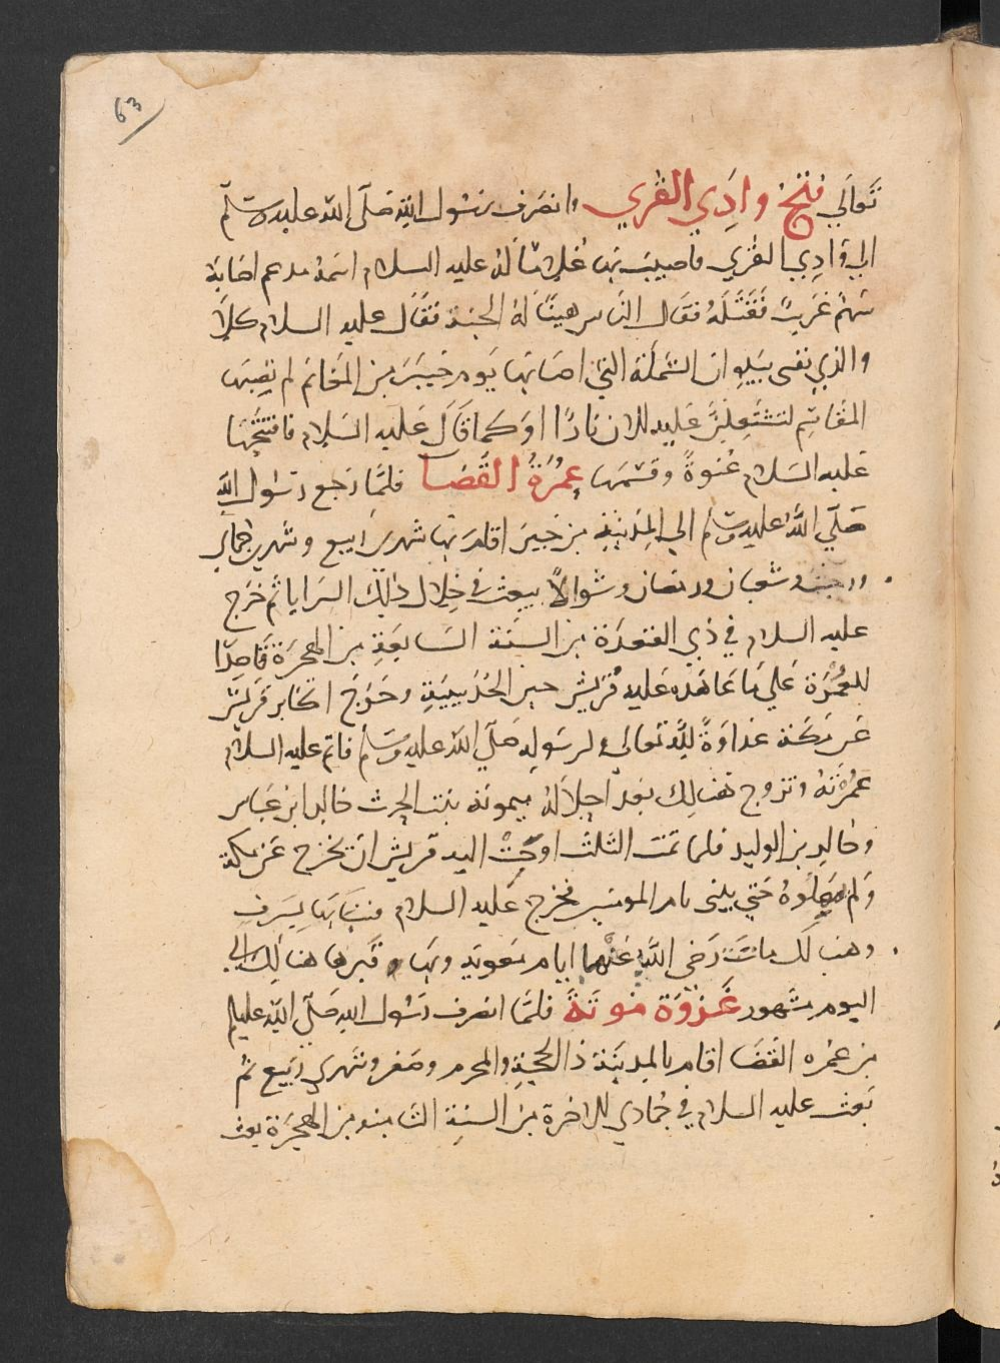 63
تَعالَي فتح وادِي القري وانصَرف رسُول اللهِ صَلّى الله عليه وسَلّم
الي وَادِي القرَي فاصيبَ بهَا غُلامًا لهُ عليه السلام اسمهُ مدعم اصَابَهُ
سَهمٌ غَربٌ فَقَتَلَهُ فقَال النَاس هنيئًا لهُ الجنة فقَال عليه السلام كلاَّ
والذي نفسى بيَدِهِ ان الشَملَة التي اصَابَها يَوم خَيبَرَ مِن المغَانم لم تصِبهَا
المقَاسِم لتشتَعِلنَّ عَليه الان نارًا اوَ كمَا قَالَ عَليه السَلام فافتتحَها
عَليه السَلام عُنوةً وقسمَها عمُرَةُ القَضَا فلمَّا رَجع رسُول اللهِ
صَلّي اللهُ عليه وسَلّم الي المدِينَةِ مِن خَيبَر اقامَ بهَا شهرى رَبيع وشهرى جمادى
ورجَبَ وشعبان ورمضان وشوالاً يبعث في خِلال ذلِكَ السرَايا ثم خرَج
عليه السلام في ذي القعدَة من السَنة السَابعَةِ من الهجرَة قَاصِدًا
للعمُرَة عَلي مَا عَاهَده عَليه قُرَيش حين الحُدَيبيَةِ وخَرَجَ اكابر قرَيش
عَن مَكَة عدَاوَةً للهِ تعالى ولرسَولِهِ صَلّي الله عليه وسَلّم فاتم عليه السلام
عمُرَتهُ وتزوج هنَالِك بَعدَ احِلالهُ ميمونَة بنت الحرث خالة ابن عَباس
وخالِد بن الوليد فلما تمت الثلث اوحَتْ اليه قرَيش ان يخرج عَن مكة
وَلم يمهلوهُ حَتي يبنى بام المومنين فخرج عَليه السلام فبنَا بهَا بسَرف
وهنَالَك ماتت رَضي اللَّهُ عَنهَا ايام معَويَه وبهَا قَبرهَا هنَالِكَ الي
اليوم مشهور غَزوَة موتَةَ فلمَّا انصَرف رَسُول الله صَلّي الله عليه وسلم
من عمُره القضَا اقام بالمدِينَة ذا الحجةِ والمحرم وصَفر وشهرَي رَبيع ثم
بَعث عليه السلام في جُمادي الاخرة من السنةِ الثامنه من الهجرَة بعث